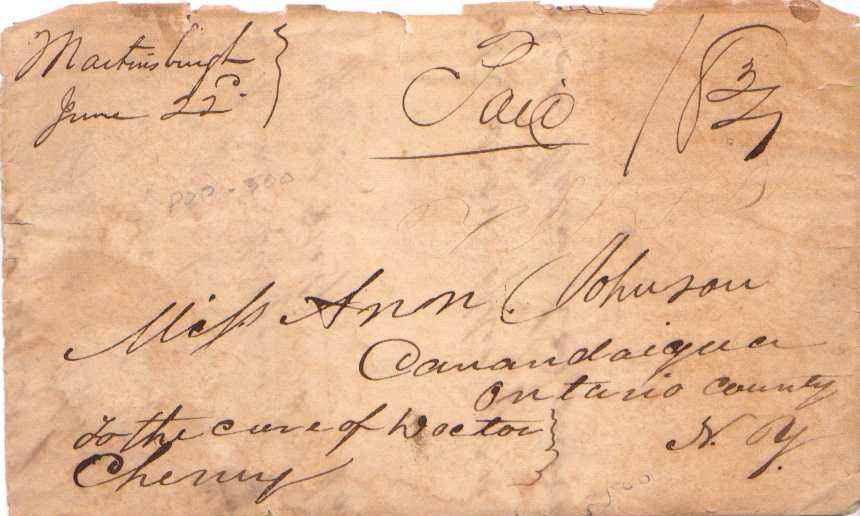 Martinsburgh
June 22d.
Paid
18 3/4
Miss Ann Johnson
Canandaigua
Ontario County
N. Y.
To the care of Doctor
Cheney